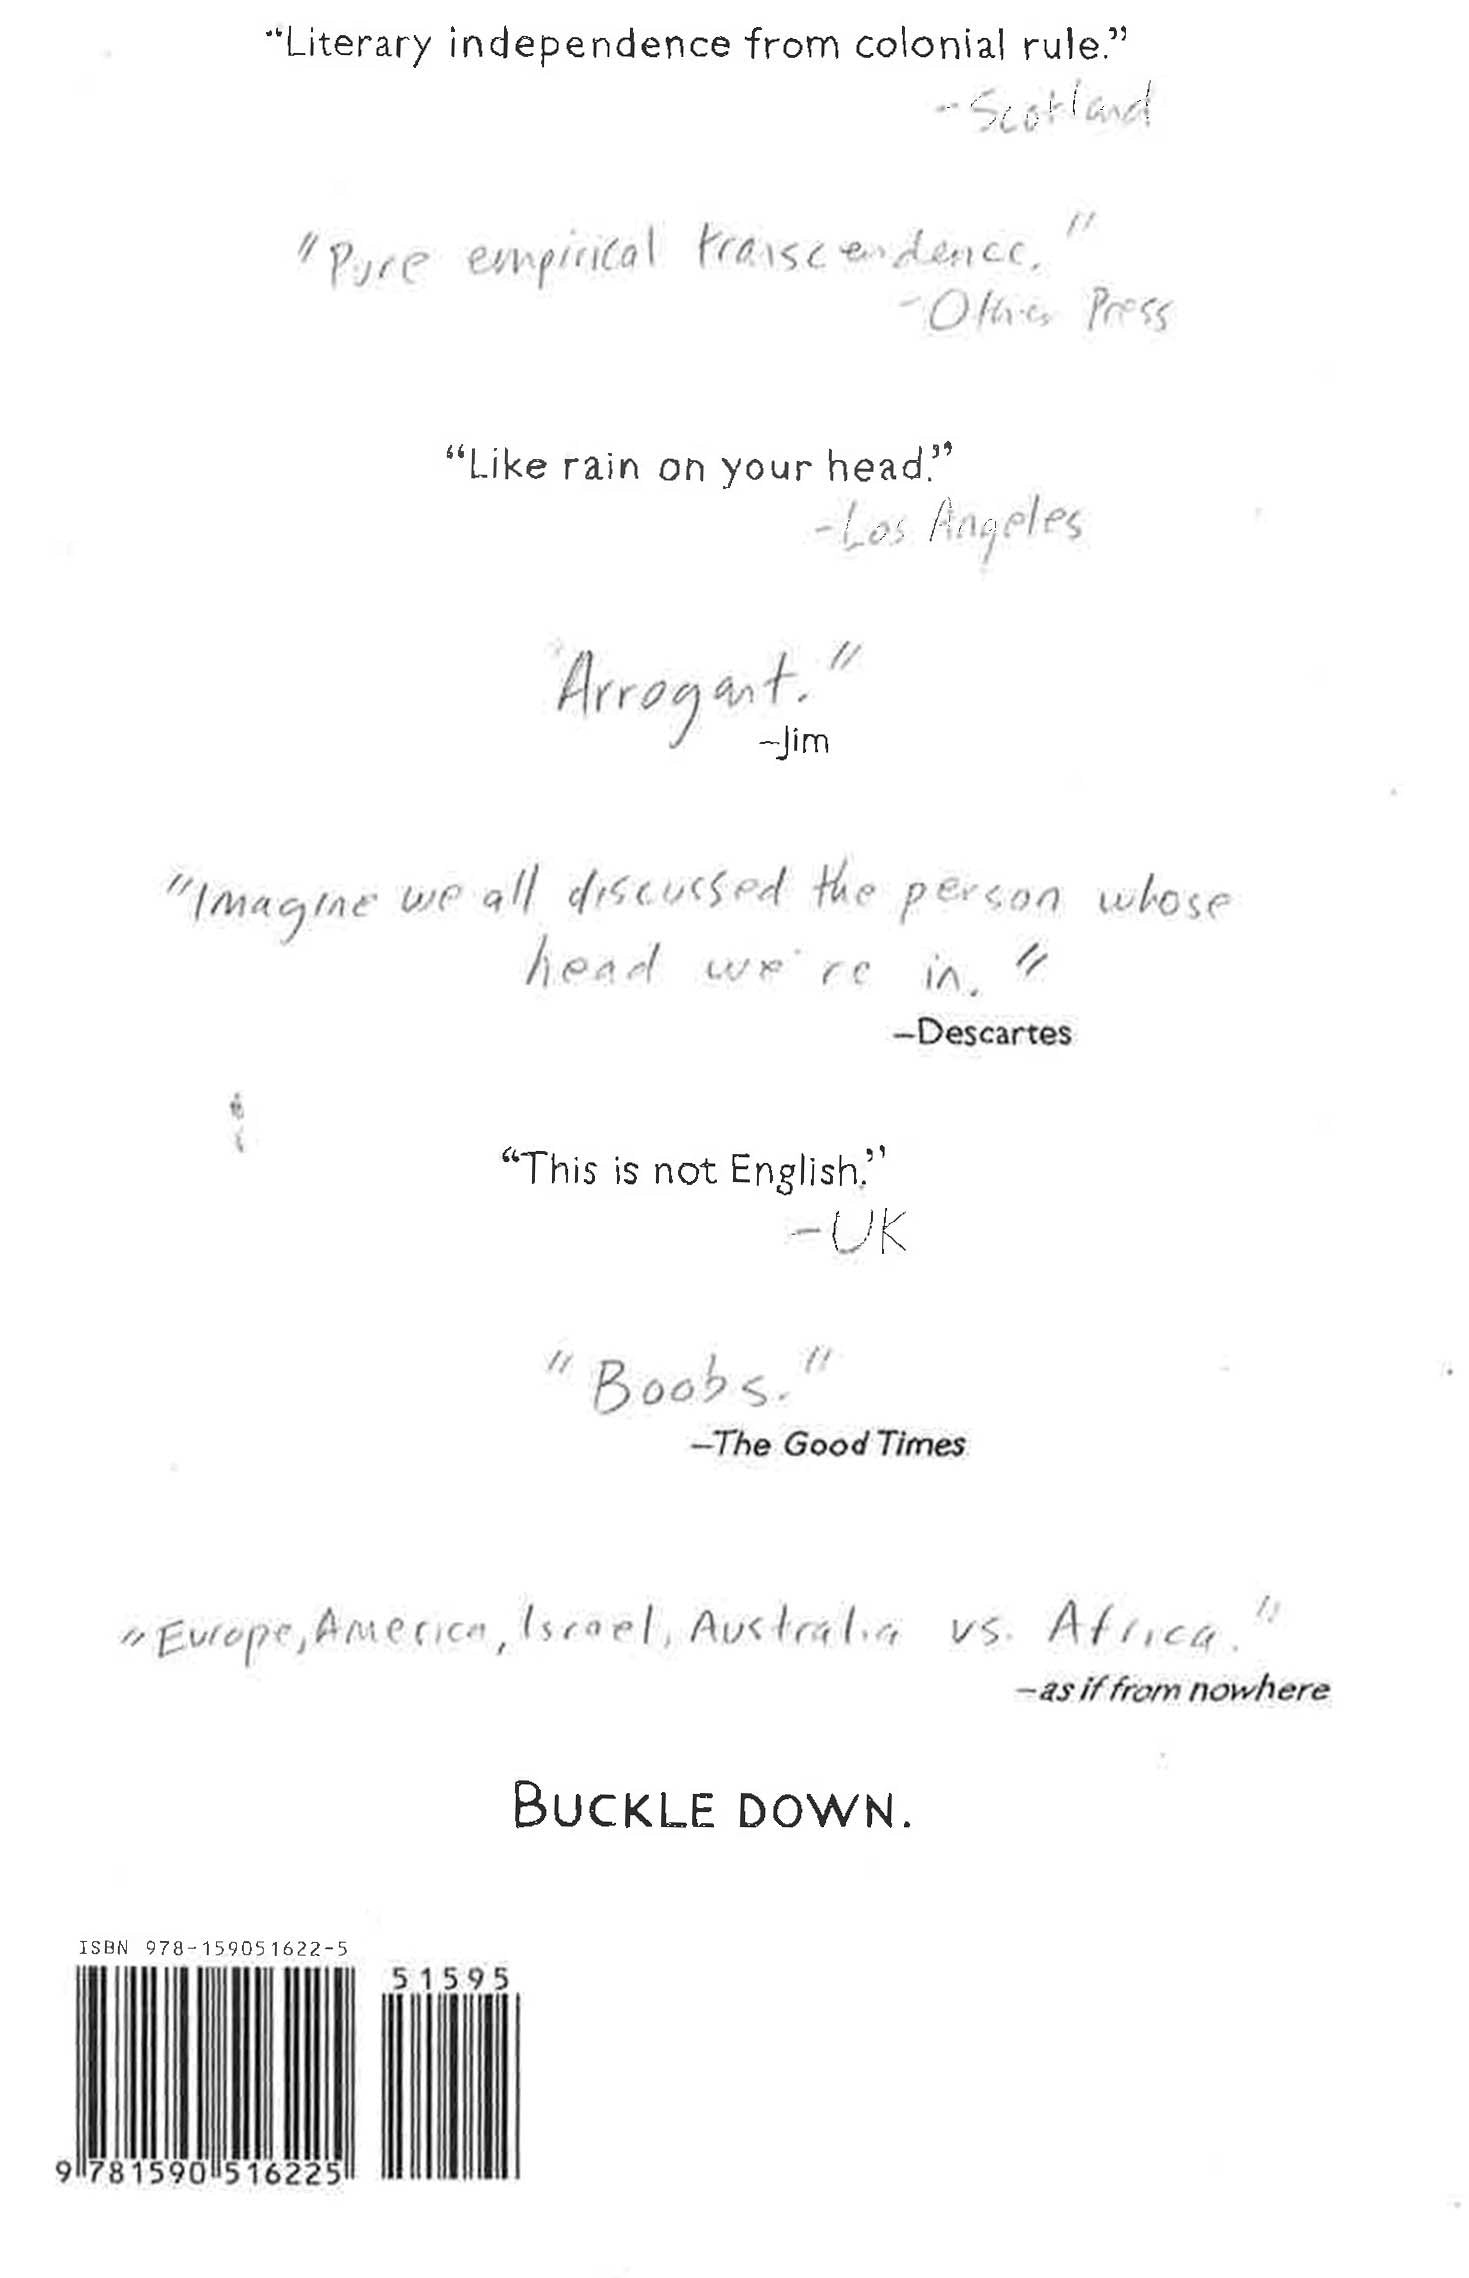 “Literary independence from colonial rule.”
-Scotland
"Pure empirical transcendence."
-Other Press
“Like rain on your head.”
-Los Angeles
"Arrogant."
–Jim
"Imagine we all discussed the person whose
head we're in."
–Descartes
“This is not English.”
-UK
"Boobs."
–The Good Times
"Europe, America, Israel, Australia vs. Africa."
–as if from nowhere
BUCKLE DOWN.
ISBN 978-159051622-5
51595
9 781590 516225